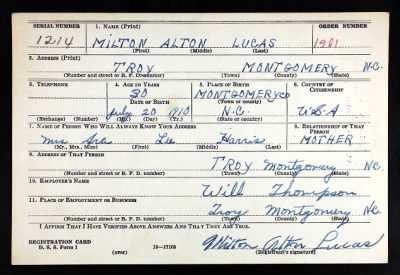 SERIAL NUMBER 1. NAME (Print) ORDER NUMBER
1214 MILTON ALTON LUCAS 1901
(First) (Middle) (Last)
2. ADDRESS (Print)
TROY MONTGOMERY N.C.
(Number and street or R. F. D. number) (Town) (County) (State)
3. TELEPHONE 4. AGE IN YEARS 5. PLACE OF BIRTH 6. COUNTRY OF CITIZENSHIP
30 MONTGOMERY CO
DATE OF BIRTH (Town or county)
July 20 1910 N.C. U.S.A
(Exchange) (Number) (Mo.) (Day) (Yr.) (State or country)
7. NAME OF PERSON WHO WILL ALWAYS KNOW YOUR ADDRESS 8. RELATIONSHIP OF THAT PERSON
Mrs Lee Harris MOTHER
(Mr., Mrs., Miss) (First) (Middle) (Last)
9. ADDRESS OF THAT PERSON
TROY Montgomery N.C.
(Number and street or R. F. D. number) (Town) (County) (State)
10. EMPLOYER'S NAME
Will Thompson
11. PLACE OF EMPLOYMENT OR BUSINESS
Troy Montgomery N.C.
(Number and street or R. F. D. number) (Town) (County) (State)
I AFFIRM THAT I HAVE VERIFIED ABOVE ANSWERS AND THAT THEY ARE TRUE.
REGISTRATION CARD
D. S. S. Form 1 (over) 16—17105 Milton Alton Lucas
(Registrant's signature)